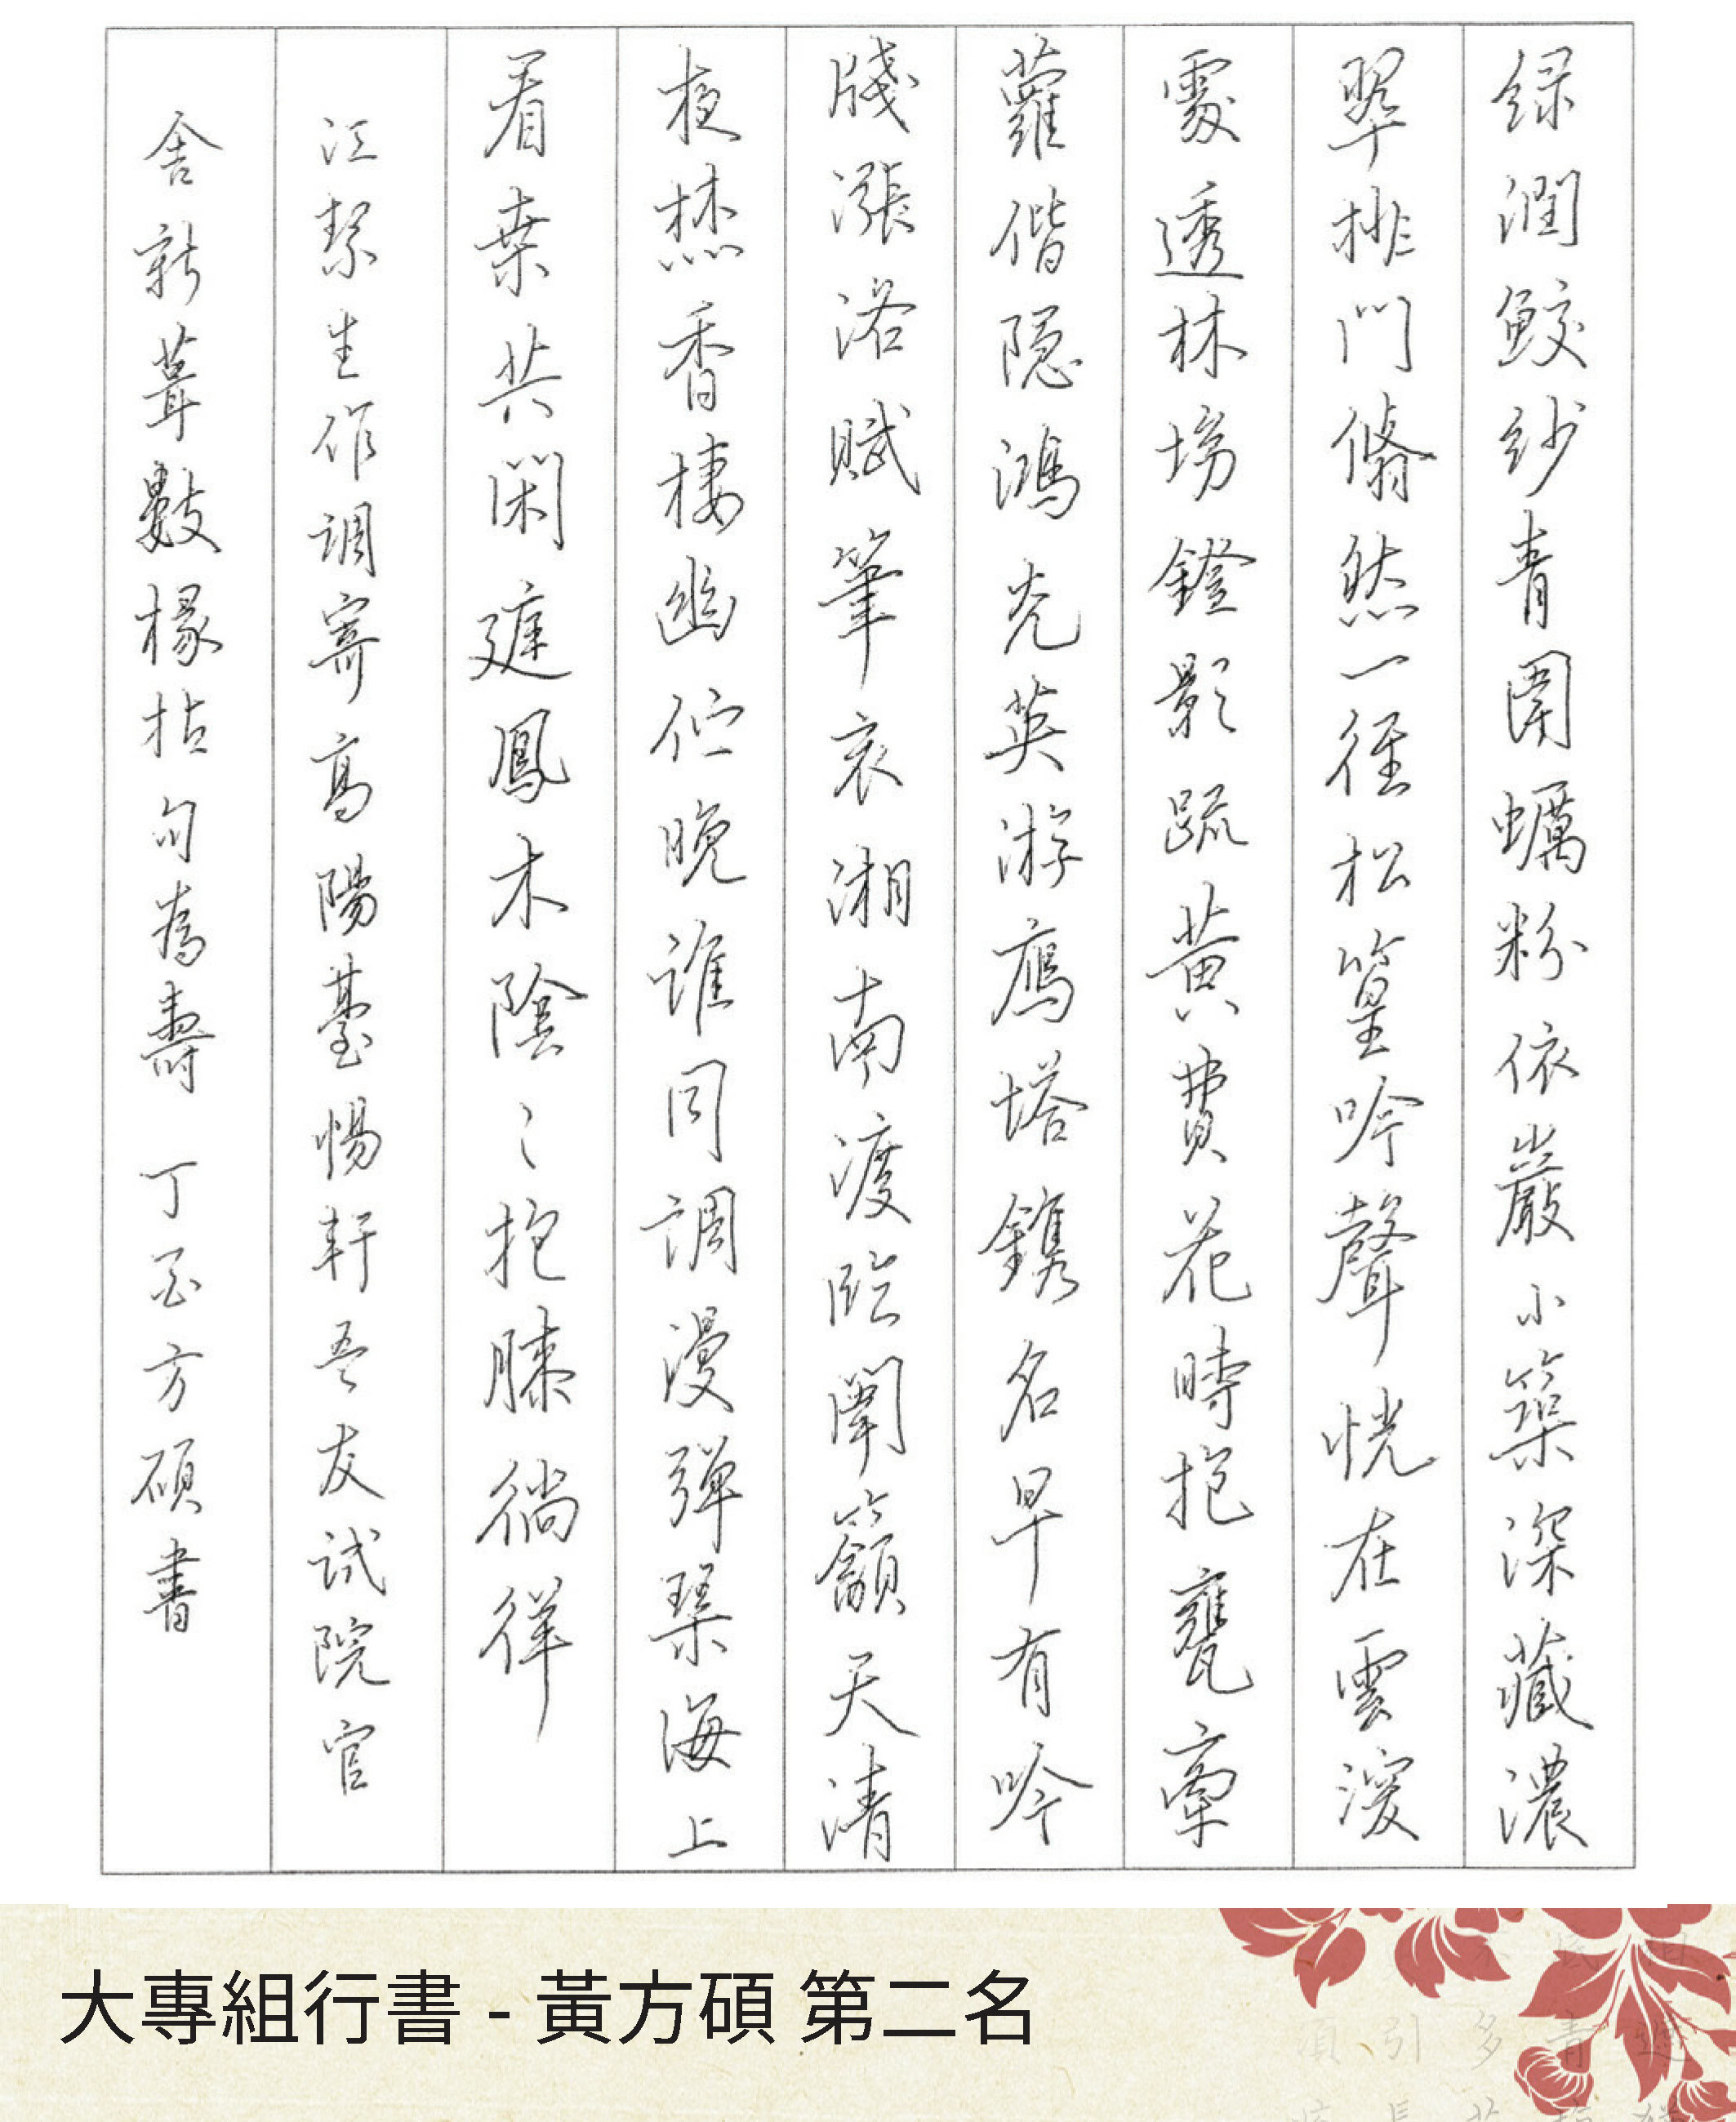 綠潤鮫紗青圍蠣粉依巖小築深藏濃
翠排門翛然一徑松篁吟聲恍在雲深
處透林塢鐙影疏黃費花時抱甕牽
蘿偕隱鴻光英游鴈塔鐫名早有吟
牋漲洛賦筆哀湘南渡臨闈籲天清
夜焚香棲幽伫晚誰同調漫彈琹海上
看桑共閑庭鳳木陰〻抱膝徜徉
江絜生作調寄高陽臺惕軒吾友試院官
舍新葺數椽拈句為壽 丁酉方碩書
大專組行書 - 黃方碩 第二名